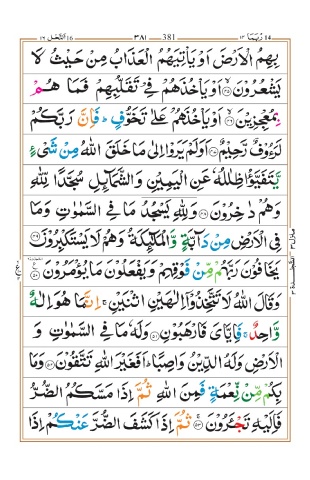 ١٤ رُبَمَا ١٣ 381 ٣٨١ النَّحْل 16 ١٦
بِهِمُ الْاَرْضَ اَوْ يَاْتِيَهُمُ الْعَذَابُ مِنْ حَيْثُ لَا
يَشْعُرُوْنَ ۙ﴿۴۵﴾ اَوْ يَاْخُذَهُمْ فِيْ تَقَلُّبِهِمْ فَمَا هُمْ
بِمُعْجِزِيْنَ ۙ﴿۴۶﴾ اَوْ يَاْخُذَهُمْ عَلٰى تَخَوُّفٍ ؕ فَاِنَّ رَبَّكُمْ
لَرَءُوْفٌ رَّحِيْمٌ ﴿۴۷﴾ اَوَلَمْ يَرَوْا اِلٰى مَا خَلَقَ اللّٰهُ مِنْ شَيْءٍ
يَّتَفَيَّؤُا ظِلٰلُهٗ عَنِ الْيَمِيْنِ وَالشَّمَآئِلِ سُجَّدًا لِّلّٰهِ
وَهُمْ دٰخِرُوْنَ ﴿۴۸﴾ وَلِلّٰهِ يَسْجُدُ مَا فِي السَّمٰوٰتِ وَمَا
فِي الْاَرْضِ مِنْ دَآبَّةٍ وَّالْمَلٰٓئِكَةُ وَهُمْ لَا يَسْتَكْبِرُوْنَ ﴿۴۹﴾
يَخَافُوْنَ رَبَّهُمْ مِّنْ فَوْقِهِمْ وَيَفْعَلُوْنَ مَا يُؤْمَرُوْنَ ﴿۵۰﴾
وَقَالَ اللّٰهُ لَا تَتَّخِذُوْٓا اِلٰهَيْنِ اثْنَيْنِ ۚ اِنَّمَا هُوَ اِلٰهٌ
وَّاحِدٌ ۚ فَاِيَّايَ فَارْهَبُوْنِ ﴿۵۱﴾ وَلَهٗ مَا فِي السَّمٰوٰتِ وَ
الْاَرْضِ وَلَهُ الدِّيْنُ وَاصِبًا ؕ اَفَغَيْرَ اللّٰهِ تَتَّقُوْنَ ﴿۵۲﴾ وَمَا
بِكُمْ مِّنْ نِّعْمَةٍ فَمِنَ اللّٰهِ ثُمَّ اِذَا مَسَّكُمُ الضُّرُّ
فَاِلَيْهِ تَجْـَٔرُوْنَ ۚ﴿۵۳﴾ ثُمَّ اِذَا كَشَفَ الضُّرَّ عَنْكُمْ اِذَا